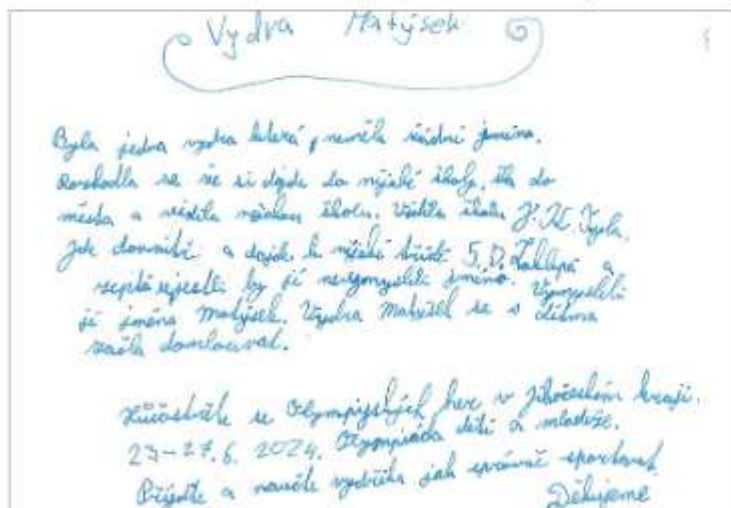 Vydra Matýsek
Byla jedna vydra která, neměla žádné jméno.
Rozhodla se že si dojde do nějaké školy. Šla do
města a viděla nějakou školu. Viděla školu J. K. Tyla.
Jde dovnitř a dojde k nějaké třídě 5. D. Zaklepá a
zeptá se jestli by jí nevymysleli jméno. Vymysleli
jí jméno Matýsek. Vydra Matýsek se s dětma
začla domlouvat.
Zúčastněte se Olympijských her v Jihočeském kraji.
23-27.6. 2024. Olympiáda dětí a mládeže.
Přijeďte a naučte vydrýska jak správně sportovat
Děkujeme